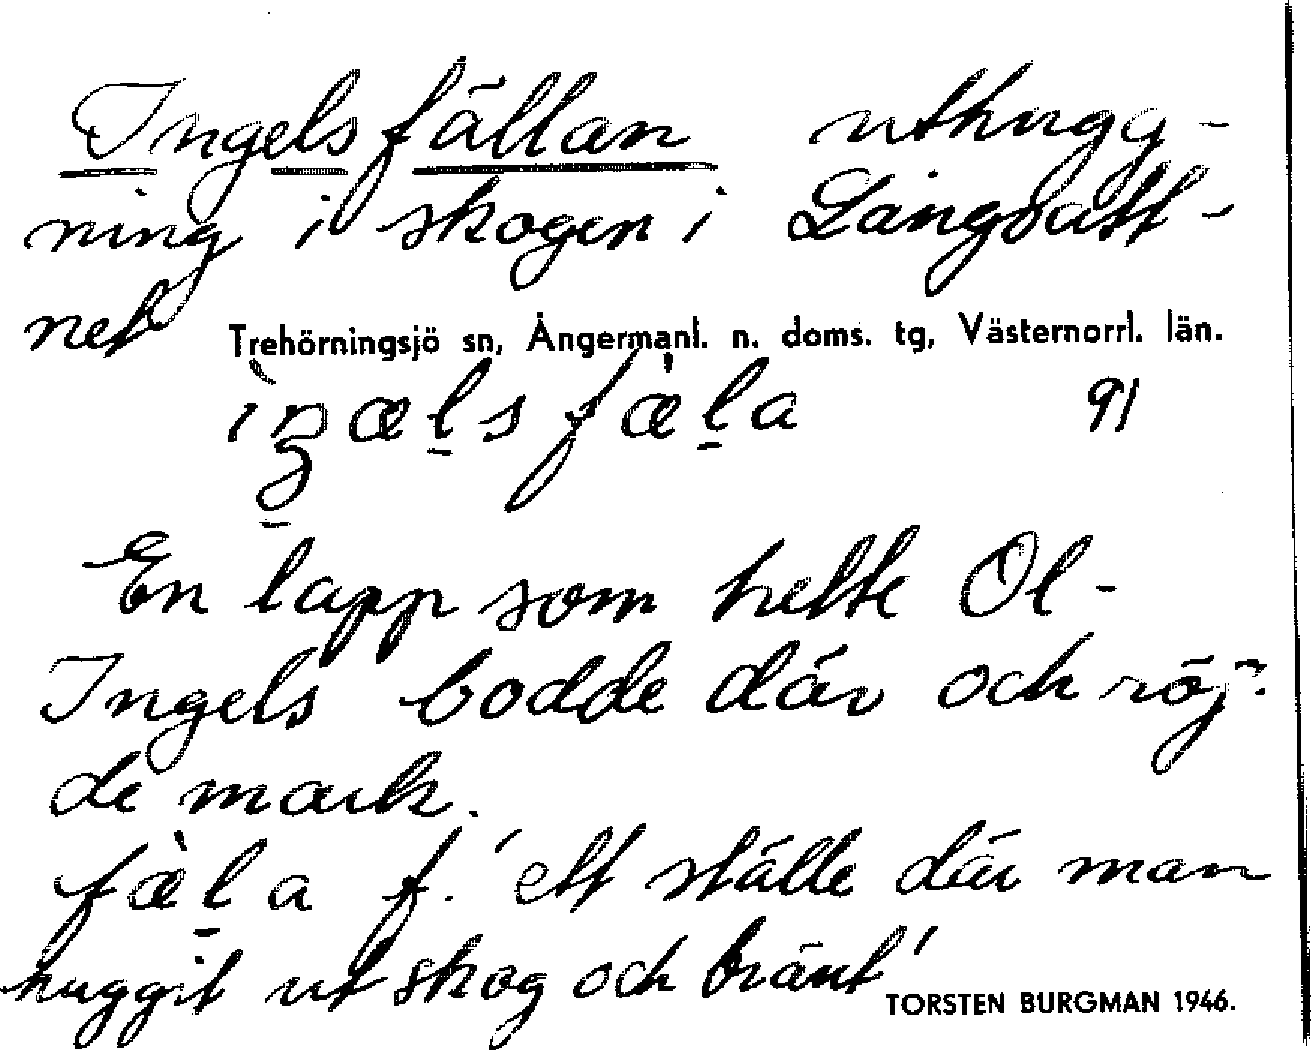 Ingelsfällan uthugg-
ning i skogen i Långvatt-
net
Trehörningsjö sn, Ångermanl. n. doms. tg, Västernorrl. län.
ìŋæls fæ̀la 91
En lapp som hette Ol-
Ingels bodde där och röj-
de mark.
fæ̀la f. 'ett ställe där man
huggit ut skog och bränt'
TORSTEN BURGMAN 1946.